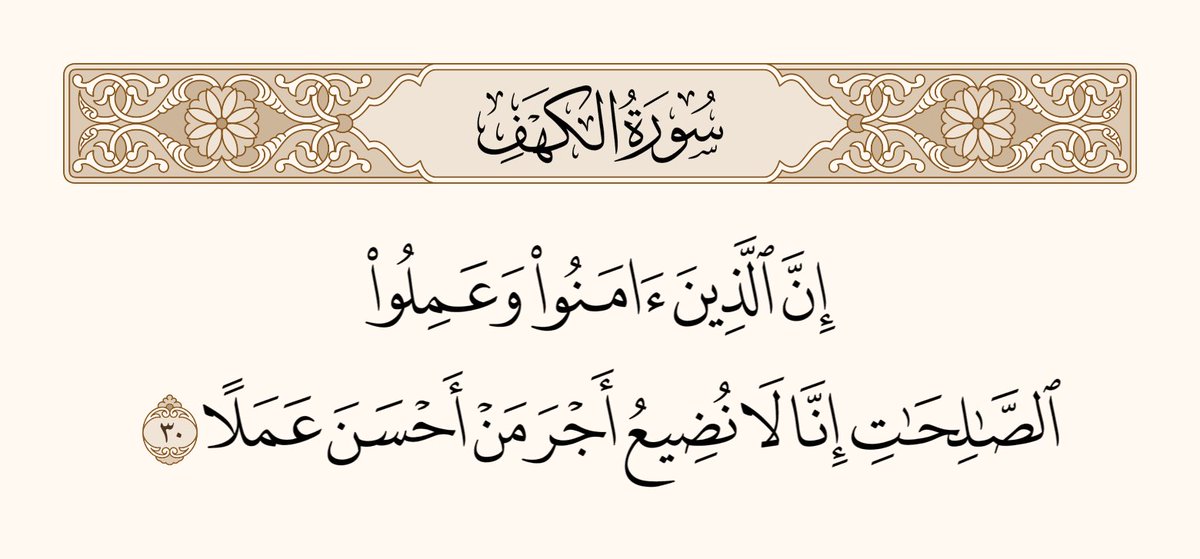 سُورَةُ الكَهۡفِ
إِنَّ ٱلَّذِينَ ءَامَنُواْ وَعَمِلُواْ
ٱلصَّٰلِحَٰتِ إِنَّا لَا نُضِيعُ أَجۡرَ مَنۡ أَحۡسَنَ عَمَلًا ٣٠